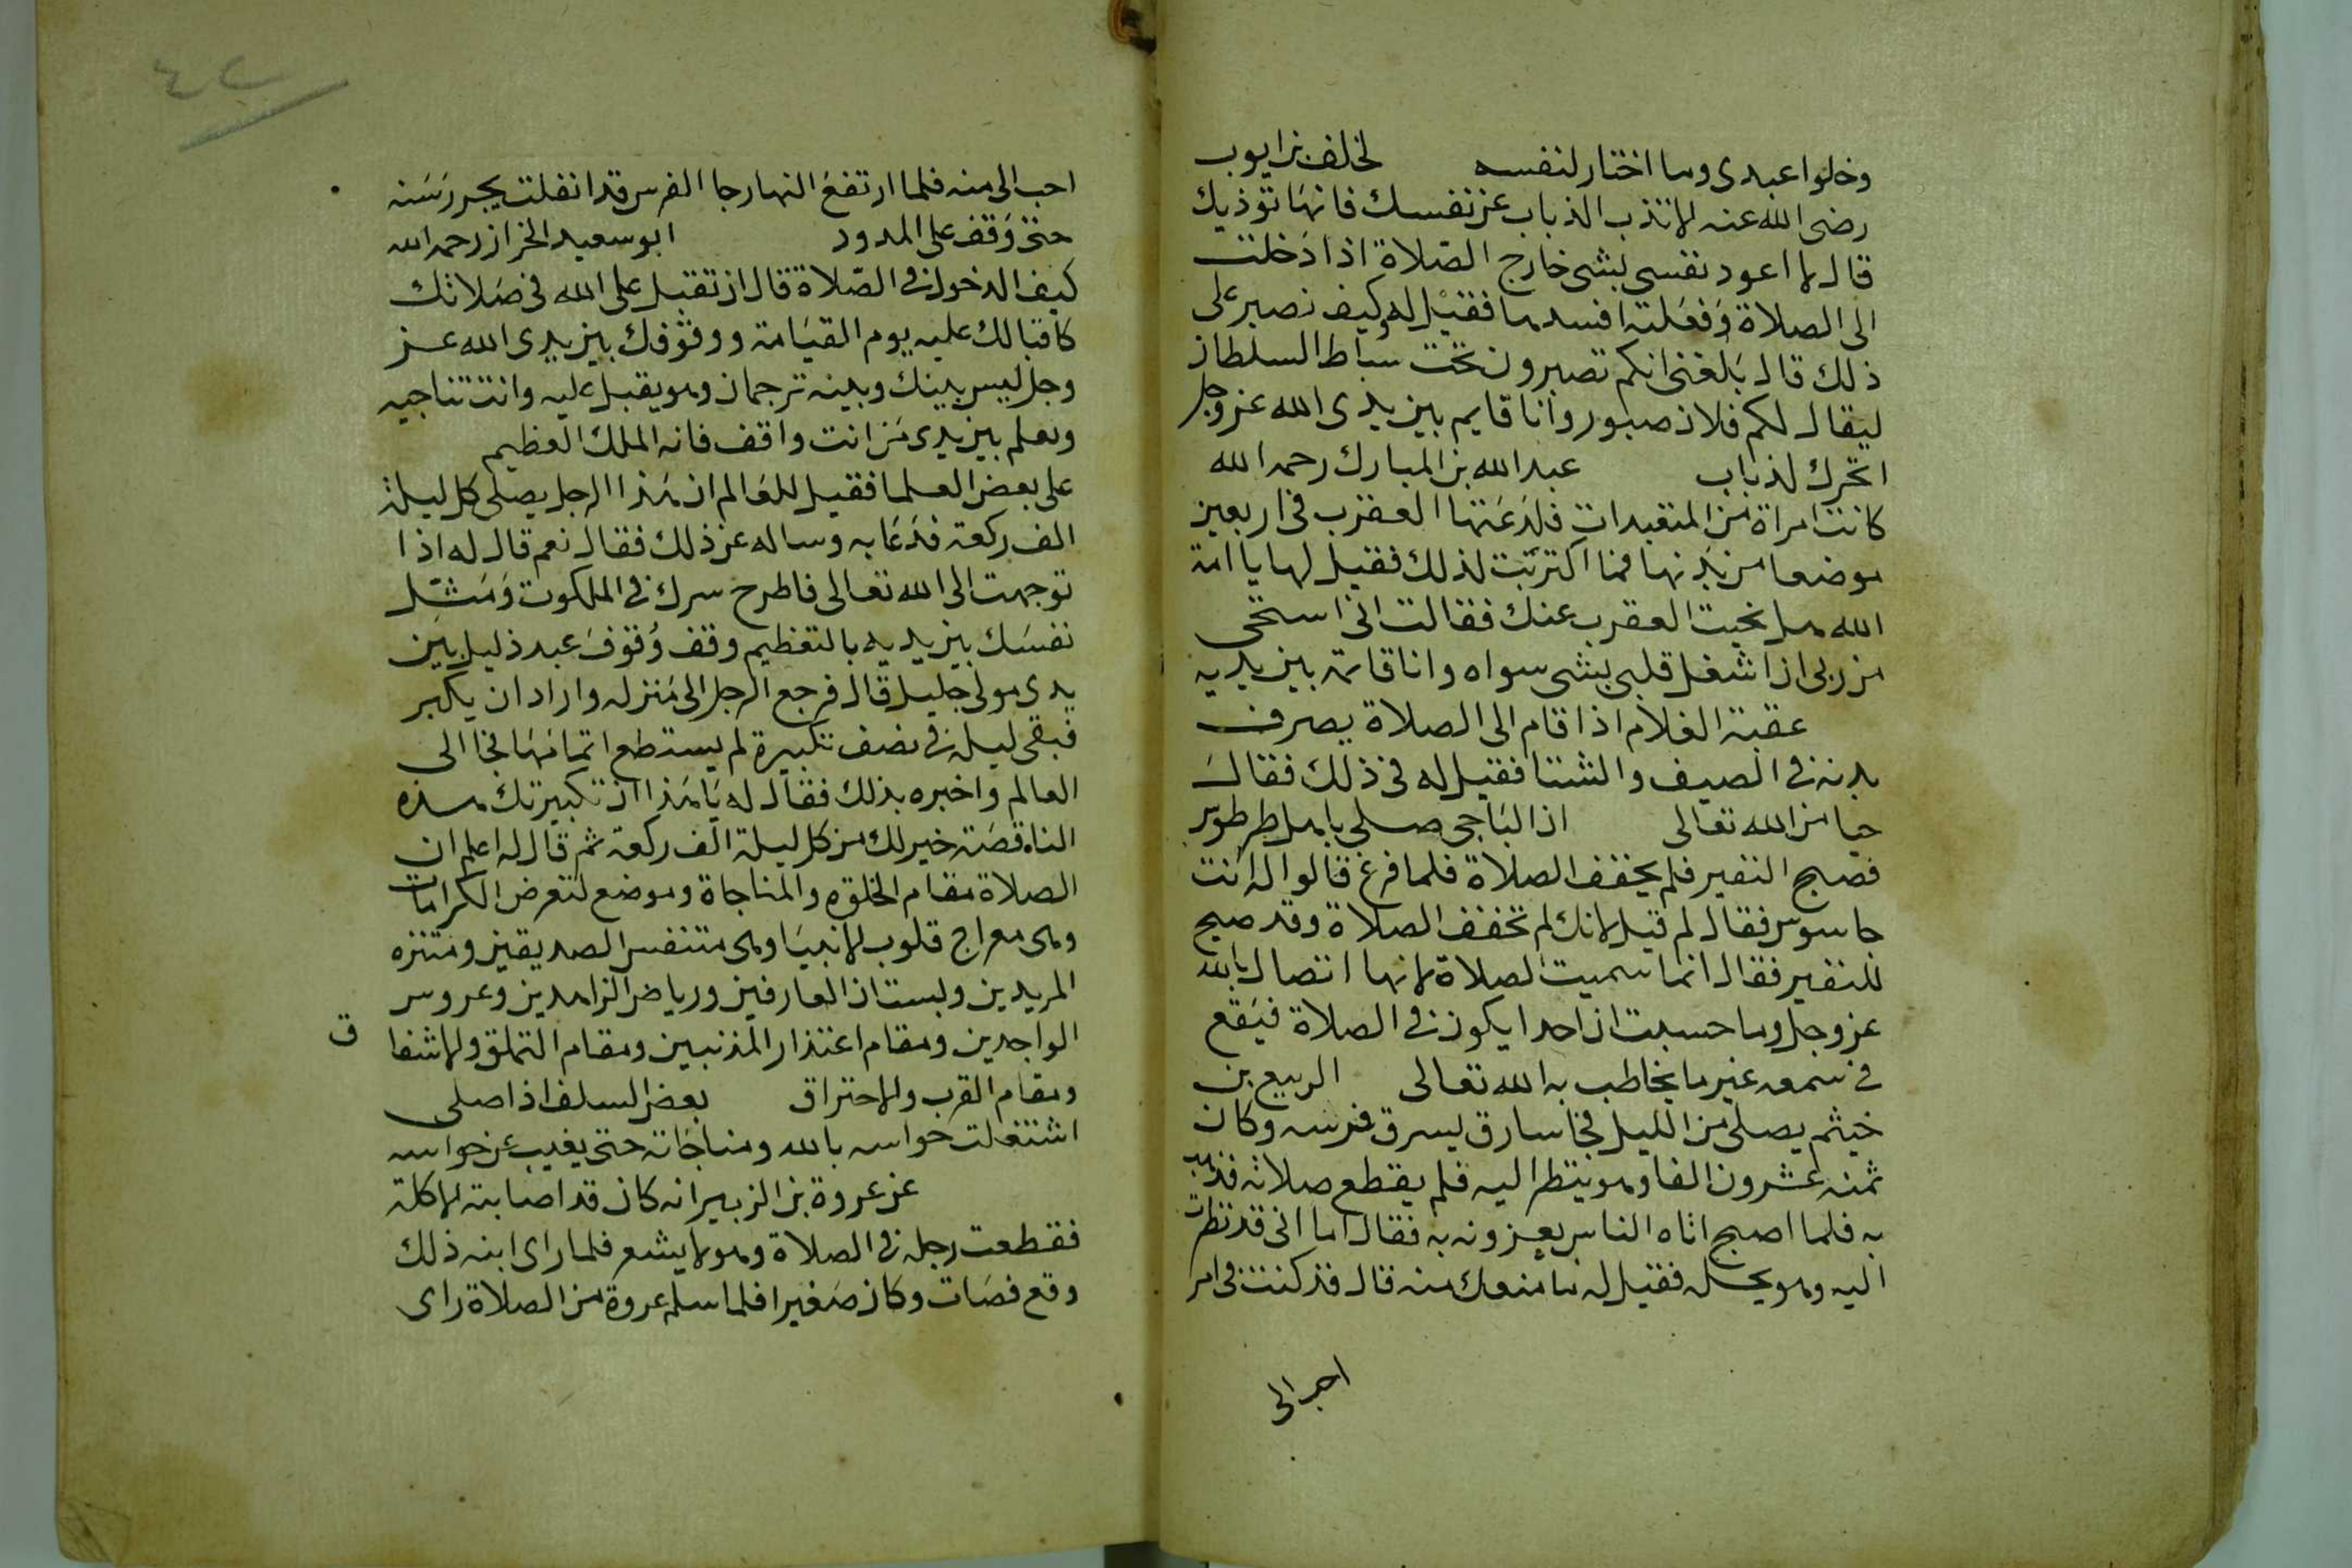 وخلوا عبدى وما اختار لنفسه لخلف بن ايوب
رضى الله عنه لا تذب الذباب عن نفسك فانها تؤذيك
قال لا اعود نفسى بشى خارج الصلاة اذا دخلت
الى الصلاة وفعلته افسدها فقيل له وكيف تصبر على
ذلك قال بلغنى انكم تصبرون تحت سياط السلطان
ليقال لكم فلان صبور وانا قايم بين يدى الله عز وجل
اتحرك لذباب عبد الله بن المبارك رحمه الله
كانت امراة من المتعبدات فلدغتها العقرب فى اربعين
موضعا من بدنها فما اكترثت لذلك فقيل لها يا امة
الله هل نحيت العقرب عنك فقالت انى استحى
من ربى ان اشغل قلبى بشى سواه وانا قائمة بين يديه
عقبة الغلام اذا قام الى الصلاة يصرف
بدنه فى الصيف والشتا فقيل له فى ذلك فقال
حيا من الله تعالى ان الباجى صلى باهل طرطوس
فصيح النفير فلم يخفف الصلاة فلما فرغ قالوا له انت
جاسوس فقال لم قيل لانك لم تخفف الصلاة وقد صيح
للنفير فقال انما سميت الصلاة لانها اتصال بالله
عز وجل وما حسبت ان احدا يكون فى الصلاة فيقع
فى سمعه غير ما يخاطب به الله تعالى الربيع بن
خيثم يصلى من الليل فجا سارق ليسرق فرسه وكان
ثمنه عشرون الفا وهو ينتظر اليه فلم يقطع صلاته فذهب
به فلما اصبح اتاه الناس يعزونه به فقال اما انى قد نظرت
اليه وهو يحله فقيل له ما منعك منه قال قد كنت فى امر
احب الى
٤٢
احب الى منه فلما ارتفع النهار جا الفرس قد انفلت يجر رسنه
حتى وقف على المدود ابو سعيد الخراز رحمه الله
كيف الدخول فى الصلاة قال ان تقبل على الله فى صلاتك
كاقبالك عليه يوم القيامة ووقوفك بين يدى الله عز
وجل ليس بينك وبينه ترجمان وهو يقبل عليه وانت تناجيه
وتعلم بين يدى من انت واقف فانه الملك العظيم
على بعض العلما فقيل للعالم ان هذا الرجل يصلى كل ليلة
الف ركعة فدعا به وساله عن ذلك فقال نعم قال له اذا
توجهت الى الله تعالى فاطرح سرك فى الملكوت ومثل
نفسك بين يديه بالتعظيم وقف وقوف عبد ذليل بين
يدى مولى جليل قال فرجع الرجل الى منزله واراد ان يكبر
فبقى ليله فى نصف تكبيرة لم يستطع اتمامها فجا الى
العالم واخبره بذلك فقال له يا هذا ان تكبيرتك هذه
الناقصة خير لك من كل ليلة الف ركعة ثم قال له اعلم ان
الصلاة مقام الخلوه والمناجاة وموضع لتعرض الكرامات
وهى معراج قلوب الانبيا وهى متنفس الصديقين ومتنزه
المريدين وبستان العارفين ورياض الزاهدين وعروس
الواجدين ومقام اعتذار المذنبين ومقام التملق والاشفا ق
ومقام القرب والاحتراق بعض السلف اذا صلى
اشتغلت حواسه بالله ومناجاته حتى يغيب عن حواسه
عن عروة بن الزبير انه كان قد اصابته الاكلة
فقطعت رجله فى الصلاة وهو لا يشعر فلما راى ابنه ذلك
وقع فمات وكان صغيرا فلما سلم عروة من الصلاة راى